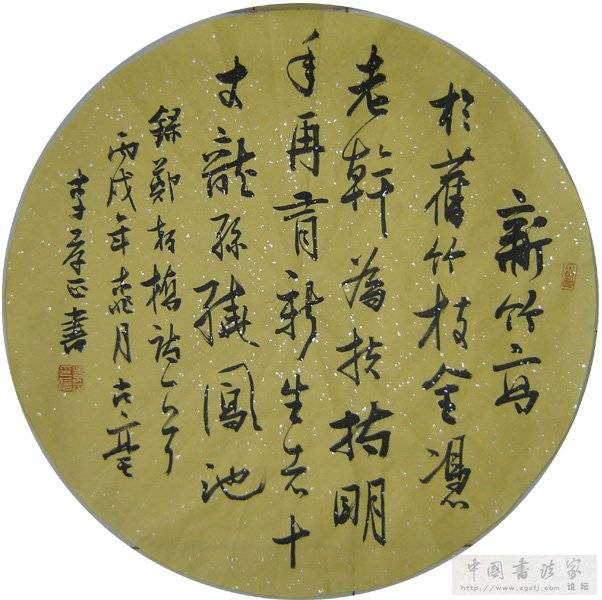 新竹高
於舊竹枝全憑
老幹為扶持明
年再有新生者十
丈龍孫繞鳳池
錄鄭板橋詩一首
丙戌年
月古亳
李
正書
中国书法家
论坛
http://www.zgsfj.com